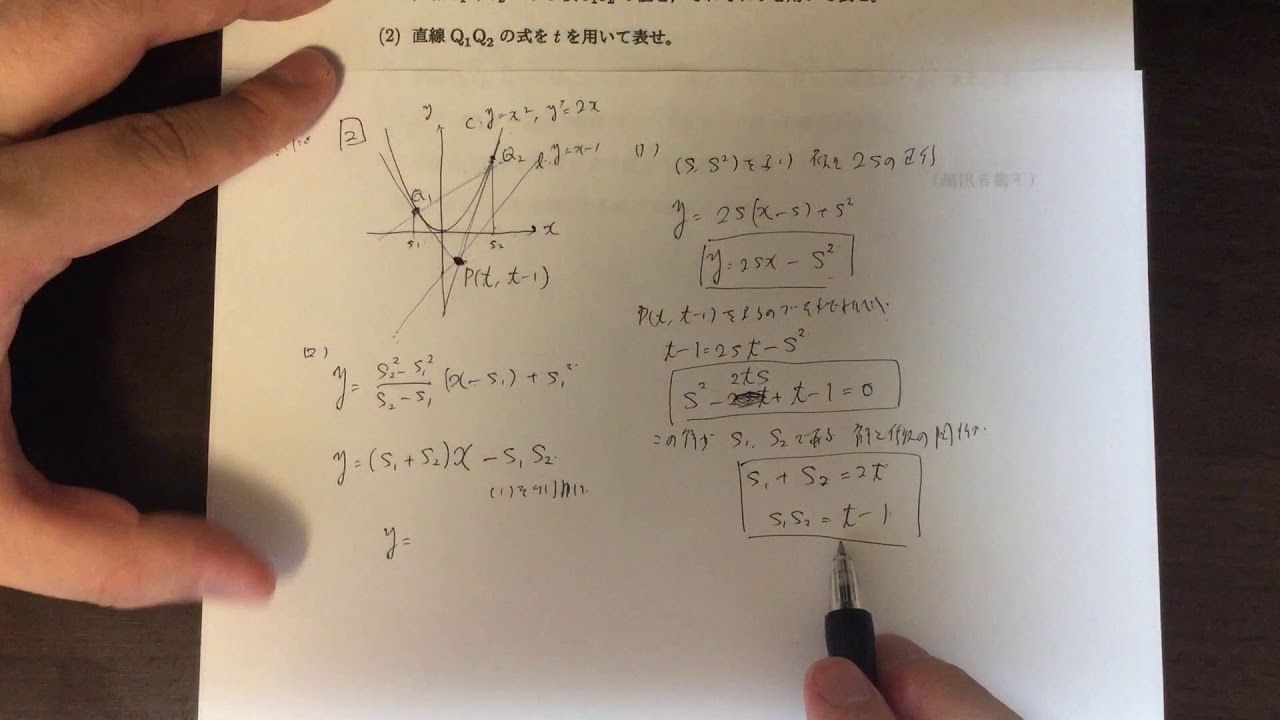 (2) 直線 Q₁Q₂ の式を t を用いて表せ。
2
y
C: y=x², y'=2x
Q₂
l: y=x-1
Q₁
S₁
S₂
x
P(t, t-1)
(1)
(S, S²)を通り 傾き 2Sの直線
y= 2S(x-S)+S²
y=2Sx - S²
P(t, t-1)を通るので
t-1=2St-S²
S²-2tS+t-1=0
この解が S₁, S₂である 解と係数の関係
S₁+S₂=2t
S₁S₂=t-1
(2)
y= (S₂²-S₁²)/(S₂-S₁) (x-S₁)+S₁²
y=(S₁+S₂)x-S₁S₂
(1)を利用
y=